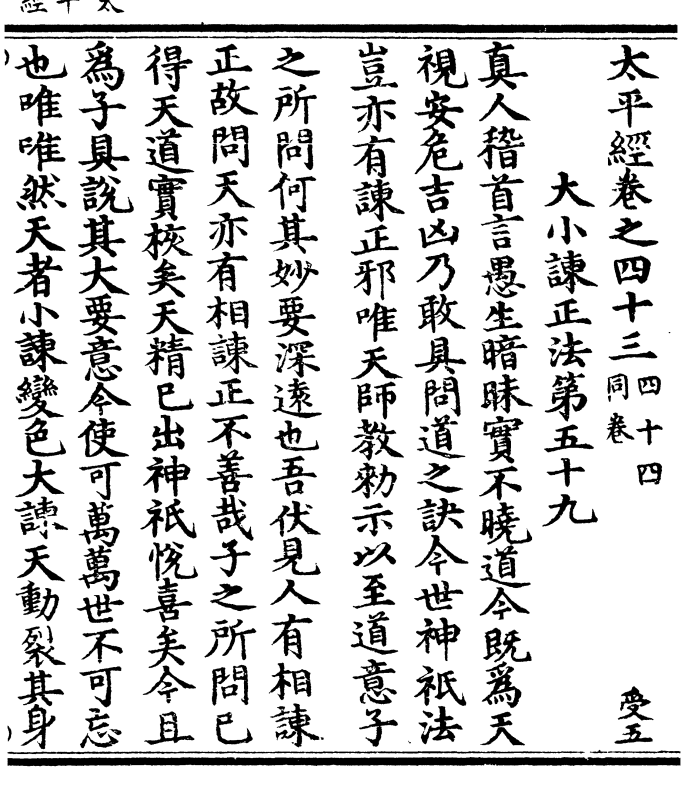 太平經
太平經卷之四十三 四十四同卷 受五
大小諫正法第五十九
真人稽首言愚生暗昧實不曉道今既爲天
視安危吉凶乃敢具問道之訣今世神祇法
豈亦有諫正邪唯天師教勑示以至道意子
之所問何其妙要深遠也吾伏見人有相諫
正故問天亦有相諫正不善哉子之所問已
得天道實核矣天精已出神祇悅喜矣今且
爲子具說其大要意今使可萬萬世不可忘
也唯唯然天者小諫變色大諫天動裂其身